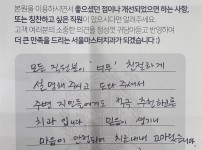 본원을 이용하시면서 좋으셨던 점이나 개선되었으면 하는 사항,
또는 칭찬하고 싶은 직원이 있으시다면 알려주세요.
고객 여러분의 소중한 의견을 정성껏 귀담아듣고 반영하여
더 큰 만족을 드리는 서울마스터치과가 되겠습니다 :)
모든 직원분이 너무 친절하게
설명해 주시고 도와 주셔서
주변 지인들에게도 적극 추천하고픈
치과 입니다 믿음이 생기니
마음이 안정되어 치료내내 고마웠습니다.